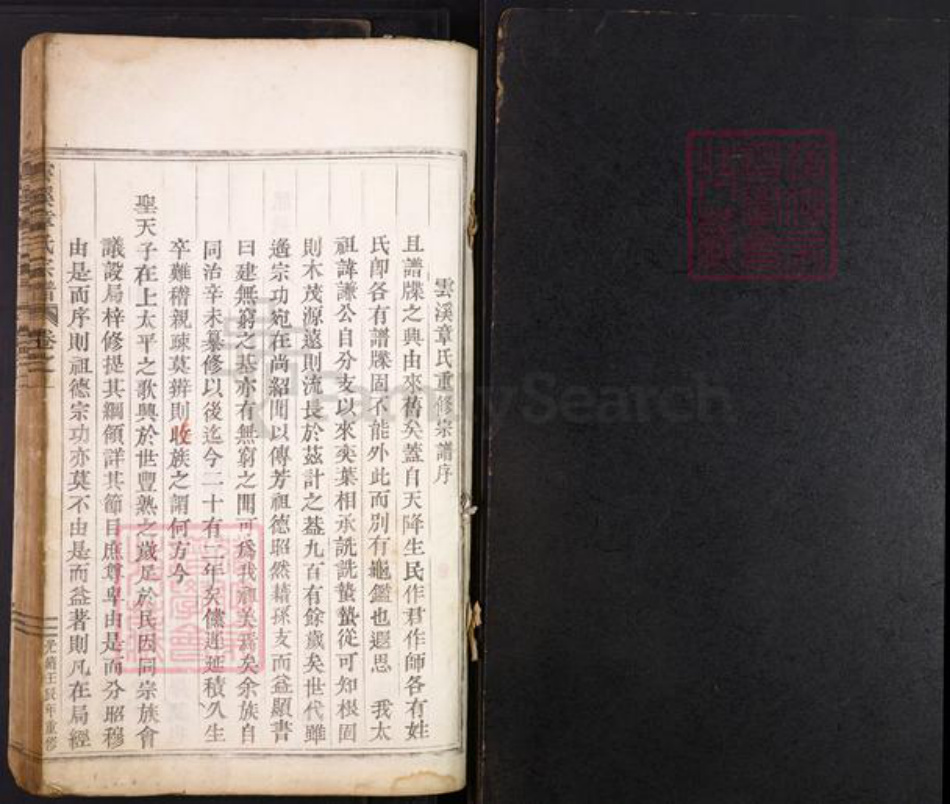 雲溪章氏重修宗譜序
且譜牒之興由來舊矣蓋自天降生民作君作師各有姓
氏卽各有譜牒固不能外此而別有龜鑑也遐思 我太
祖諱謙公自分支以來奕葉相承詵詵蟄蟄從可知根固
則木茂源遠則流長於茲計之蓋九百有餘歲矣世代雖
遙宗功宛在尚紹聞以傳芳祖德昭然藉孫支而益顯書
曰建無窮之基亦有無窮之聞可爲我頌美焉矣余族自
同治辛未纂修以後迄今二十有二年矣儻遲延積久生
卒難稽親疎莫辨則收族之謂何方今
聖天子在上太平之歌興於世豐熟之歲足於民因同宗族會
議設局梓修提其綱領詳其節目庶尊卑由是而分昭穆
由是而序則祖德宗功亦莫不由是而益著則凡在局經
雲溪章氏宗譜 卷之
光緒壬辰年重修
FamilySearch